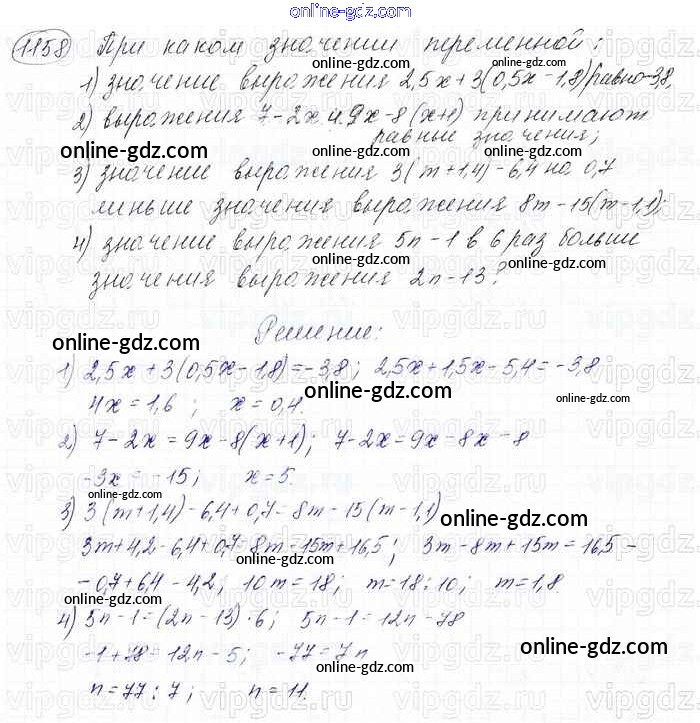 online-gdz.com
1158 При каком значении переменной:
1) значение выражения 2,5x+3(0,5x-1,8) равно -3,8,
2) выражения 7-2x и 9x-8(x+1) принимают
равные значения;
online-gdz.com
online-gdz.com
3) значение выражения 3(m+1,4)-6,4 на 0,7
меньше значения выражения 8m-15(m-1,1);
online-gdz.com
4) значение выражения 5n-1 в 6 раз больше
значения выражения 2n-13?
online-gdz.com
Решение:
online-gdz.com
1) 2,5x+3(0,5x-1,8)=-3,8; 2,5x+1,5x-5,4=-3,8
online-gdz.com
4x=1,6; x=0,4.
online-gdz.com
2) 7-2x=9x-8(x+1); 7-2x=9x-8x-8
-3x=-15; x=5.
online-gdz.com
3) 3(m+1,4)-6,4+0,7=8m-15(m-1,1)
online-gdz.com
3m+4,2-6,4+0,7=8m-15m+16,5; 3m-8m+15m=16,5-
-0,7+6,4-4,2; 10m=18; m=18:10; m=1,8
online-gdz.com
4) 5n-1=(2n-13)·6; 5n-1=12n-78
online-gdz.com
-1+78=12n-5; -77=7n
online-gdz.com
n=77:7; n=11.